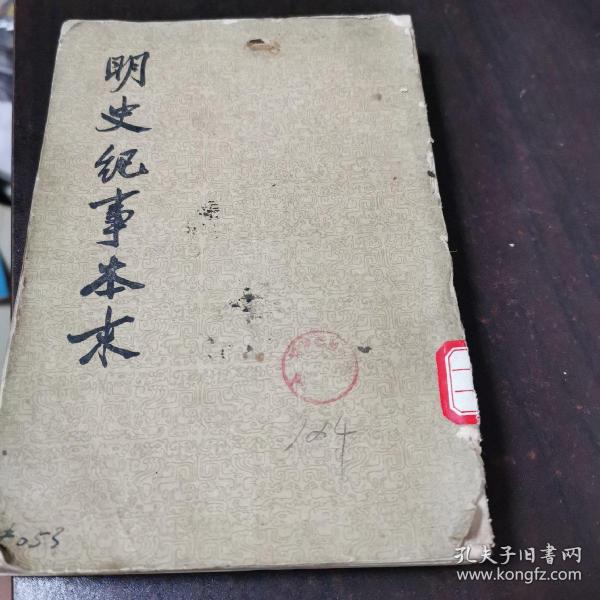 明史纪事本末
164
053
孔夫子旧书网
www.kongfz.com